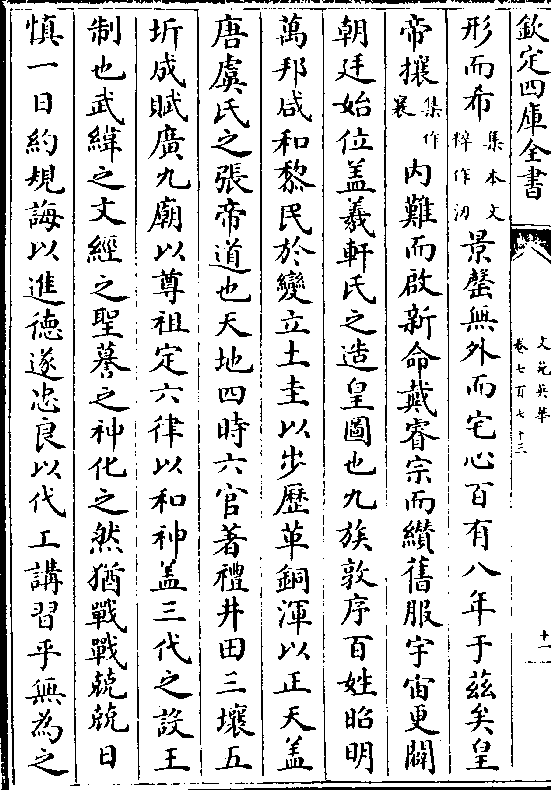 欽定四庫全書
文苑英華
卷七百七十三
十一
形而希集本文粹作沕景罄無外而宅心百有八年于茲矣皇
帝攘集作襄内難而啟新命戴睿宗而纘舊服宇宙更闢
朝廷始位盖羲軒氏之造皇圖也九族敦序百姓昭明
萬邦咸和黎民於變立土圭以步歷革銅渾以正天盖
唐虞氏之張帝道也天地四時六官著禮井田三壤五
圻成賦廣九廟以尊祖定六律以和神盖三代之設王
制也武緯之文經之聖謩之神化之然猶戰戰兢兢日
慎一日約規誨以進德遂忠良以代工講習乎無為之